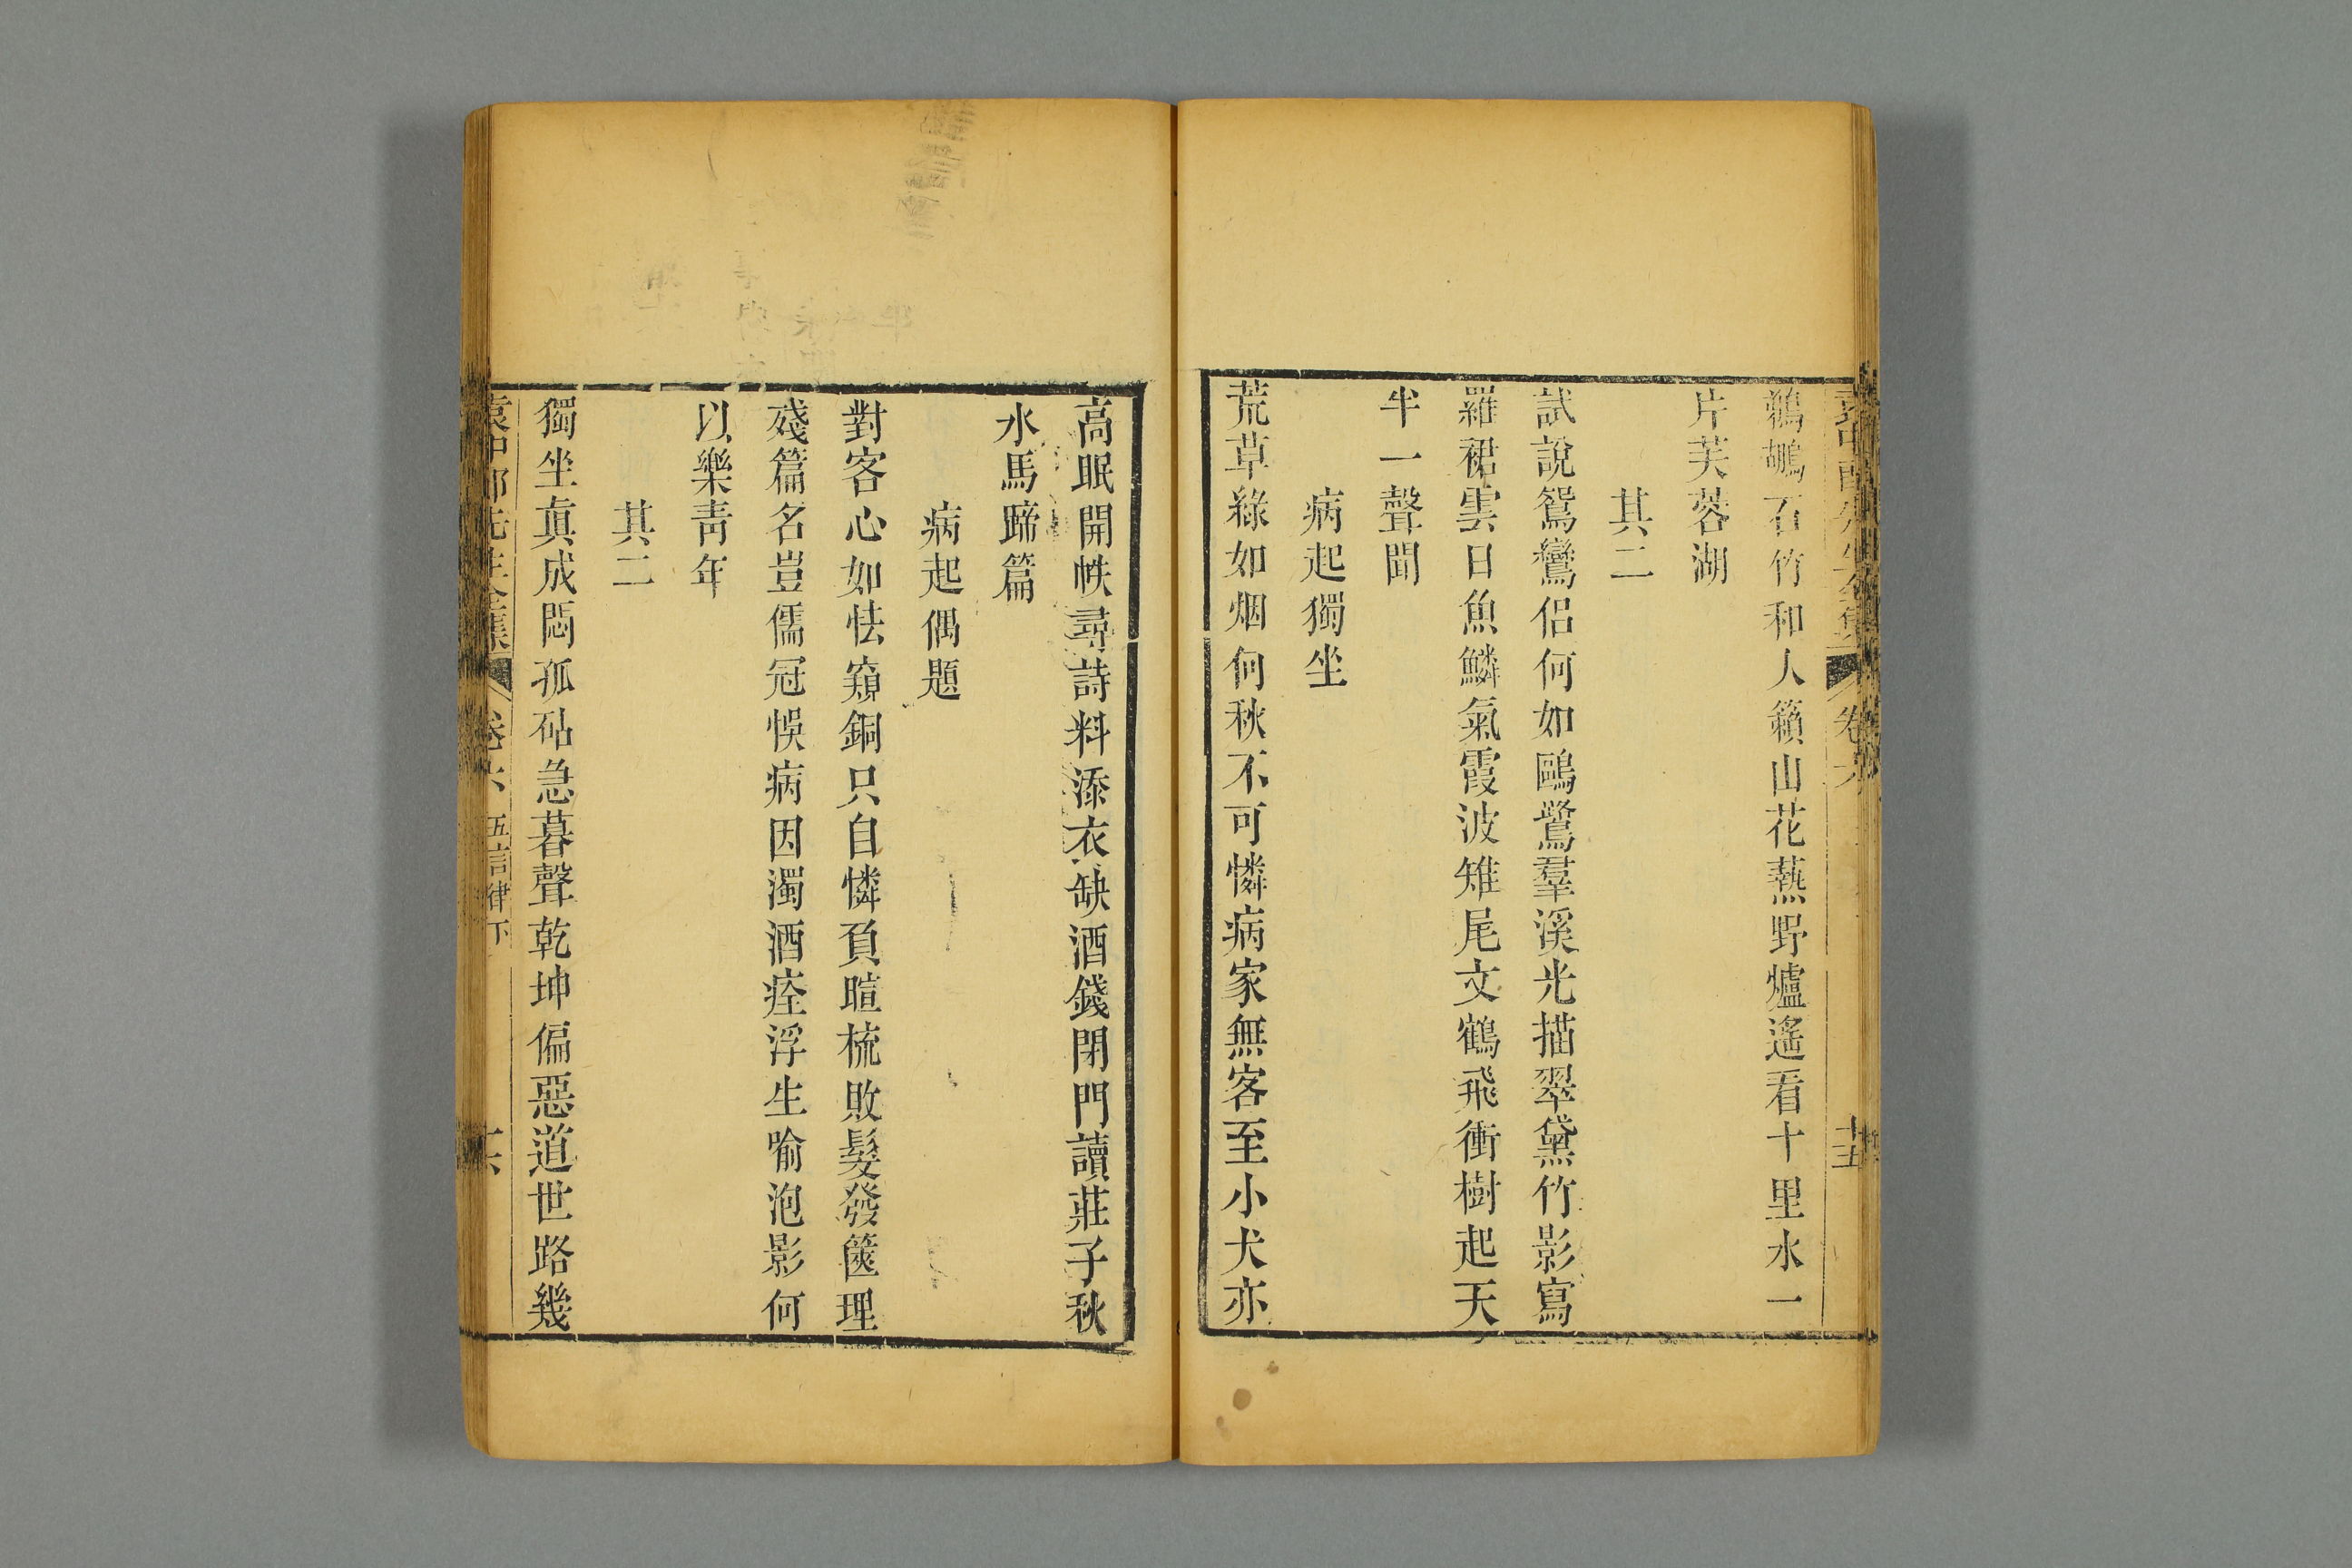 鵜鶘石竹和人籟山花爇野爐遙看十里水一
片芙蓉湖
其二
試說鴛鸞侶何如鷗鷺羣溪光描翠黛竹影寫
羅裙雲日魚鱗氣霞波雉尾文鶴飛衝樹起天
半一聲聞
病起獨坐
荒草綠如烟何秋不可憐病家無客至小犬亦
高眠開帙尋詩料添衣缺酒錢閉門讀莊子秋
水馬蹄篇
病起偶題
對客心如怯窺銅只自憐負暄梳敗髮發篋理
殘篇名豈儒冠悞病因濁酒痊浮生喻泡影何
以樂靑年
其二
獨坐眞成悶孤砧急暮聲乾坤偏惡道世路幾
袁中郎先生全集 卷六 五言律下 十六